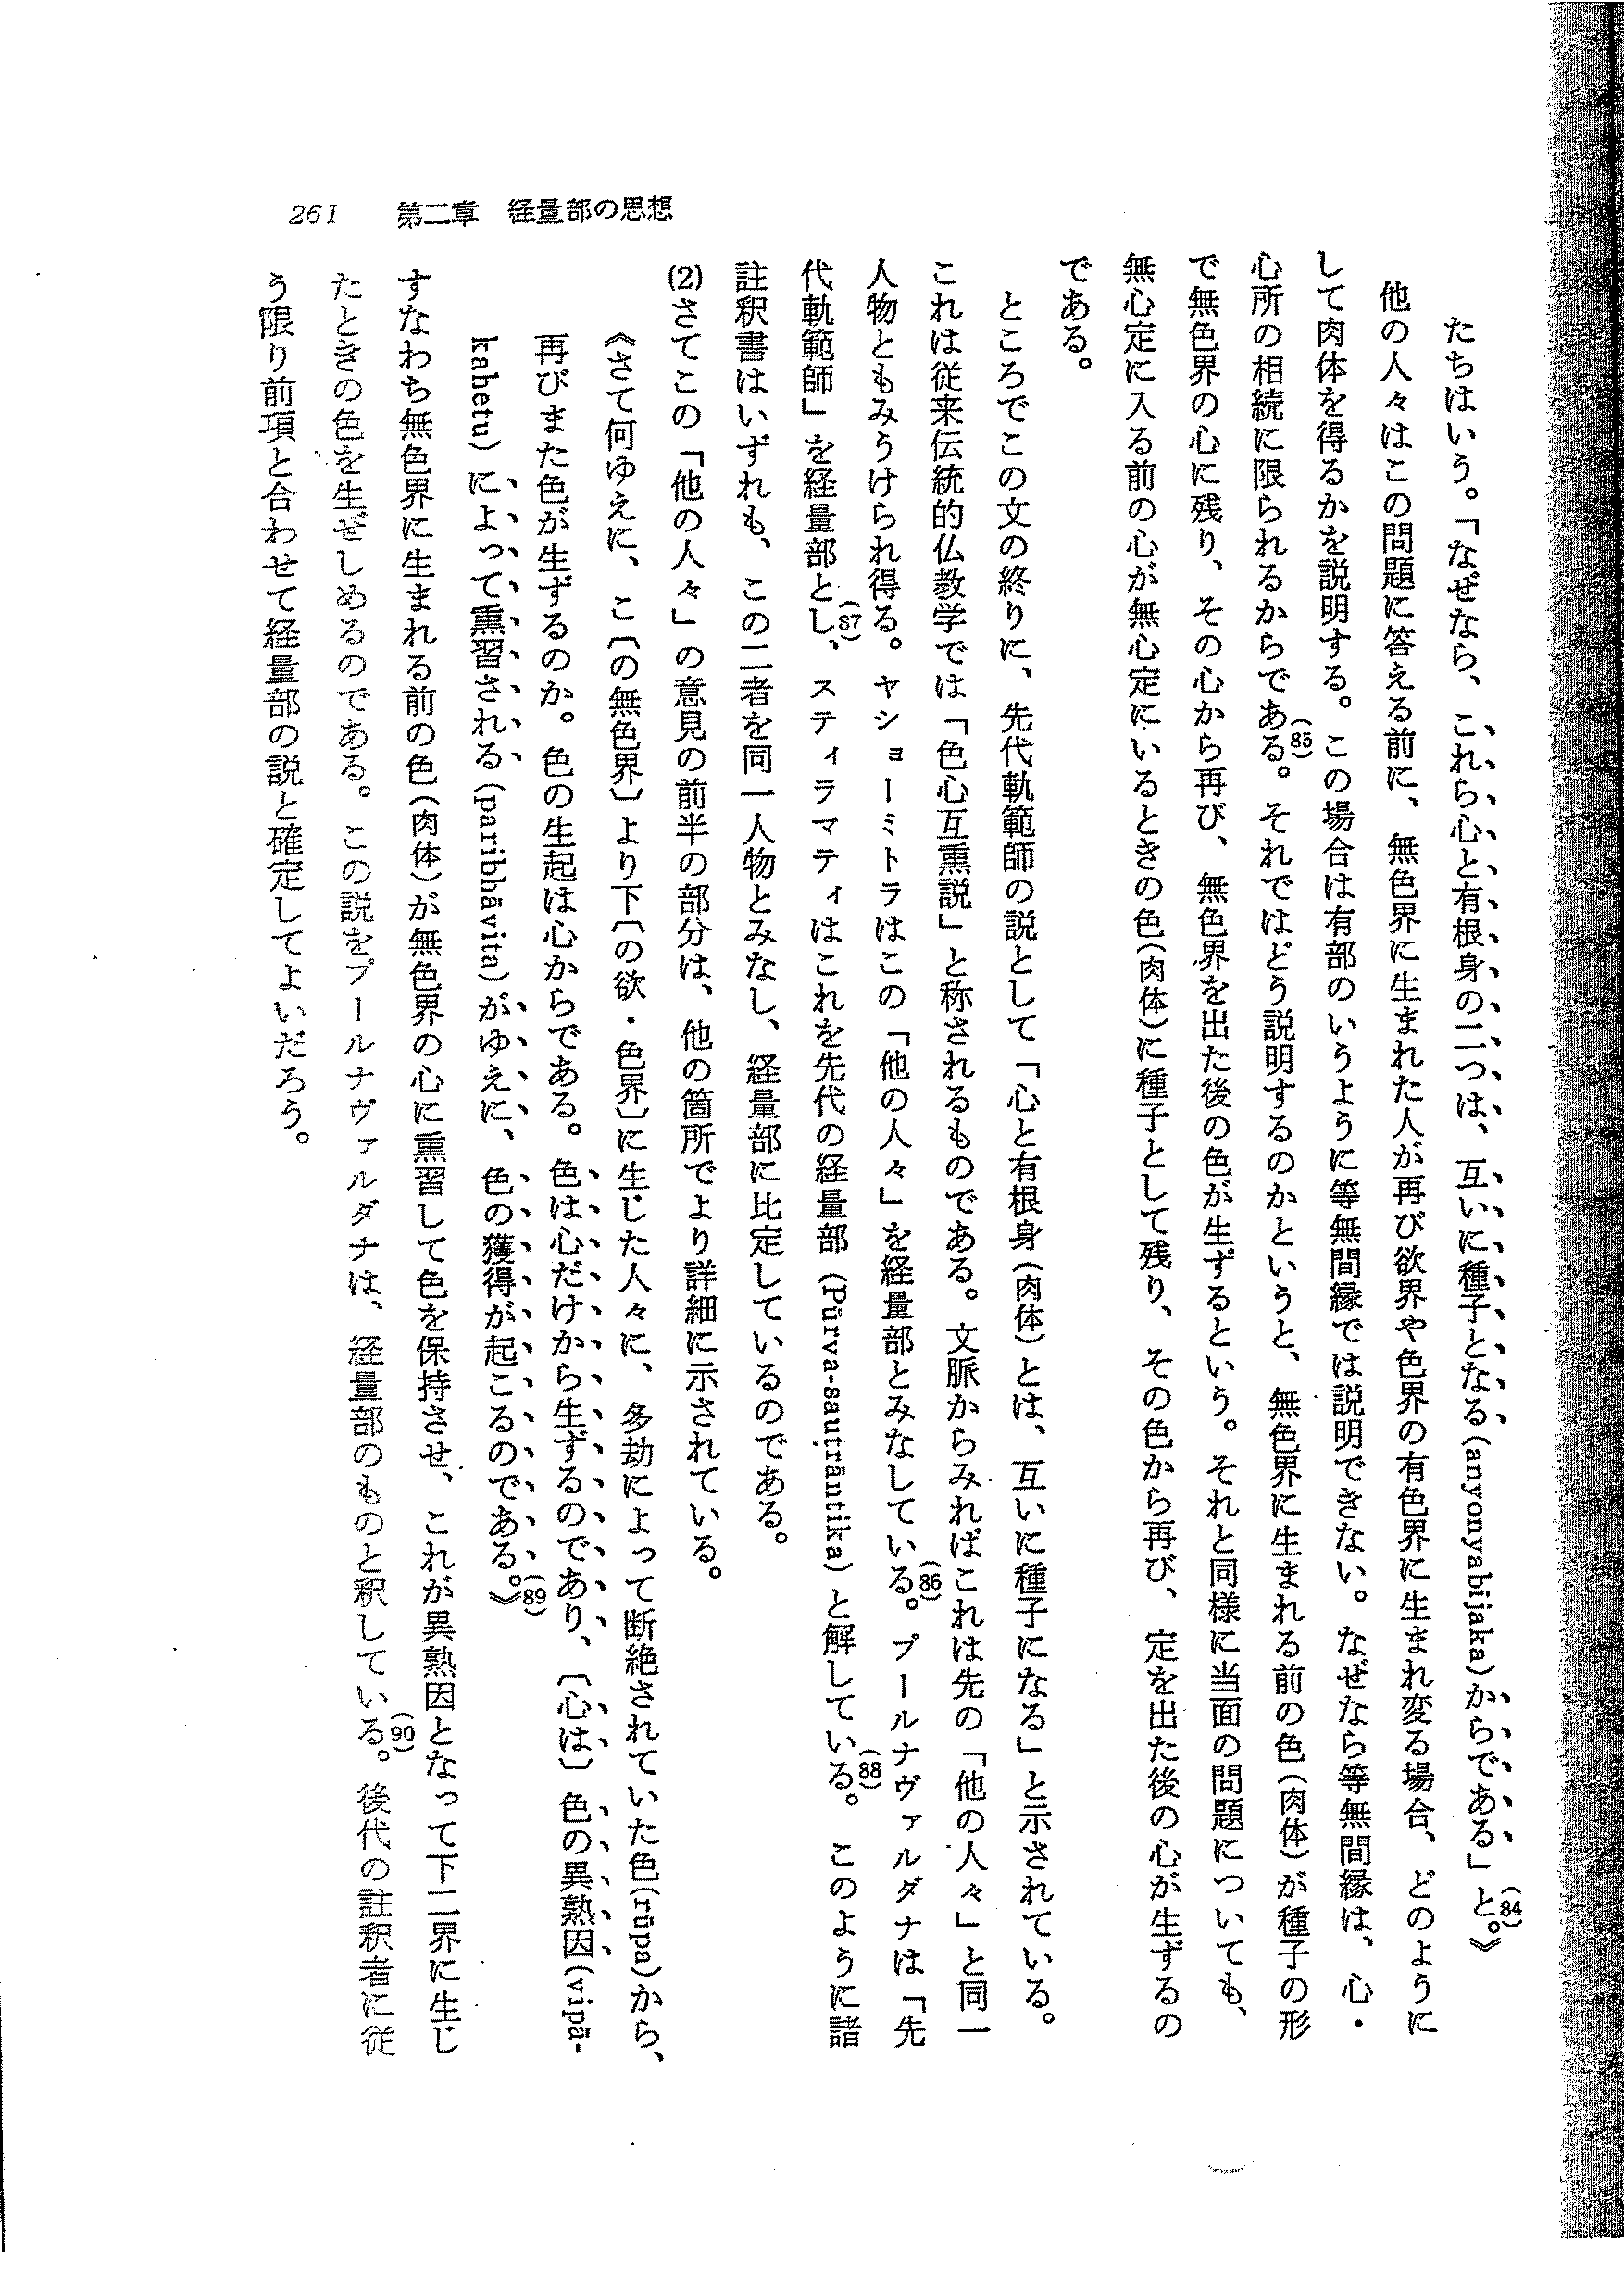 261　第二章　経量部の思想
たちはいう。「なぜなら、これら心と有根身の二つは、互いに種子となる(anyonyabījaka)からである」と。》(84)
他の人々はこの問題に答える前に、無色界に生まれた人が再び欲界や色界の有色界に生まれ変る場合、どのように
して肉体を得るかを説明する。この場合は有部のいうように等無間縁では説明できない。なぜなら等無間縁は、心・
心所の相続に限られるからである(85)。それではどう説明するのかというと、無色界に生まれる前の色(肉体)が種子の形
で無色界の心に残り、その心から再び、無色界を出た後の色が生ずるという。それと同様に当面の問題についても、
無心定に入る前の心が無心定にいるときの色(肉体)に種子として残り、その色から再び、定を出た後の心が生ずるの
である。
ところでこの文の終りに、先代軌範師の説として「心と有根身(肉体)とは、互いに種子になる」と示されている。
これは従来伝統的仏教学では「色心互熏説」と称されるものである。文脈からみればこれは先の「他の人々」と同一
人物ともみうけられ得る。ヤショーミトラはこの「他の人々」を経量部とみなしている(86)。プールナヴァルダナは「先
代軌範師」を経量部とし(87)、スティラマティはこれを先代の経量部(Pūrva-sautrāntika)と解している(88)。このように諸
註釈書はいずれも、この二者を同一人物とみなし、経量部に比定しているのである。
(2)さてこの「他の人々」の意見の前半の部分は、他の箇所でより詳細に示されている。
《さて何ゆえに、こ〔の無色界〕より下〔の欲・色界〕に生じた人々に、多劫によって断絶されていた色(rūpa)から、
再びまた色が生ずるのか。色の生起は心からである。色は心だけから生ずるのであり、〔心は〕色の異熟因(vipā-
kahetu)によって熏習される(paribhāvita)がゆえに、色の獲得が起こるのである。》(89)
すなわち無色界に生まれる前の色(肉体)が無色界の心に熏習して色を保持させ、これが異熟因となって下二界に生じ
たときの色を生ぜしめるのである。この説をプールナヴァルダナは、経量部のものと釈している(90)。後代の註釈者に従
う限り前項と合わせて経量部の説と確定してよいだろう。